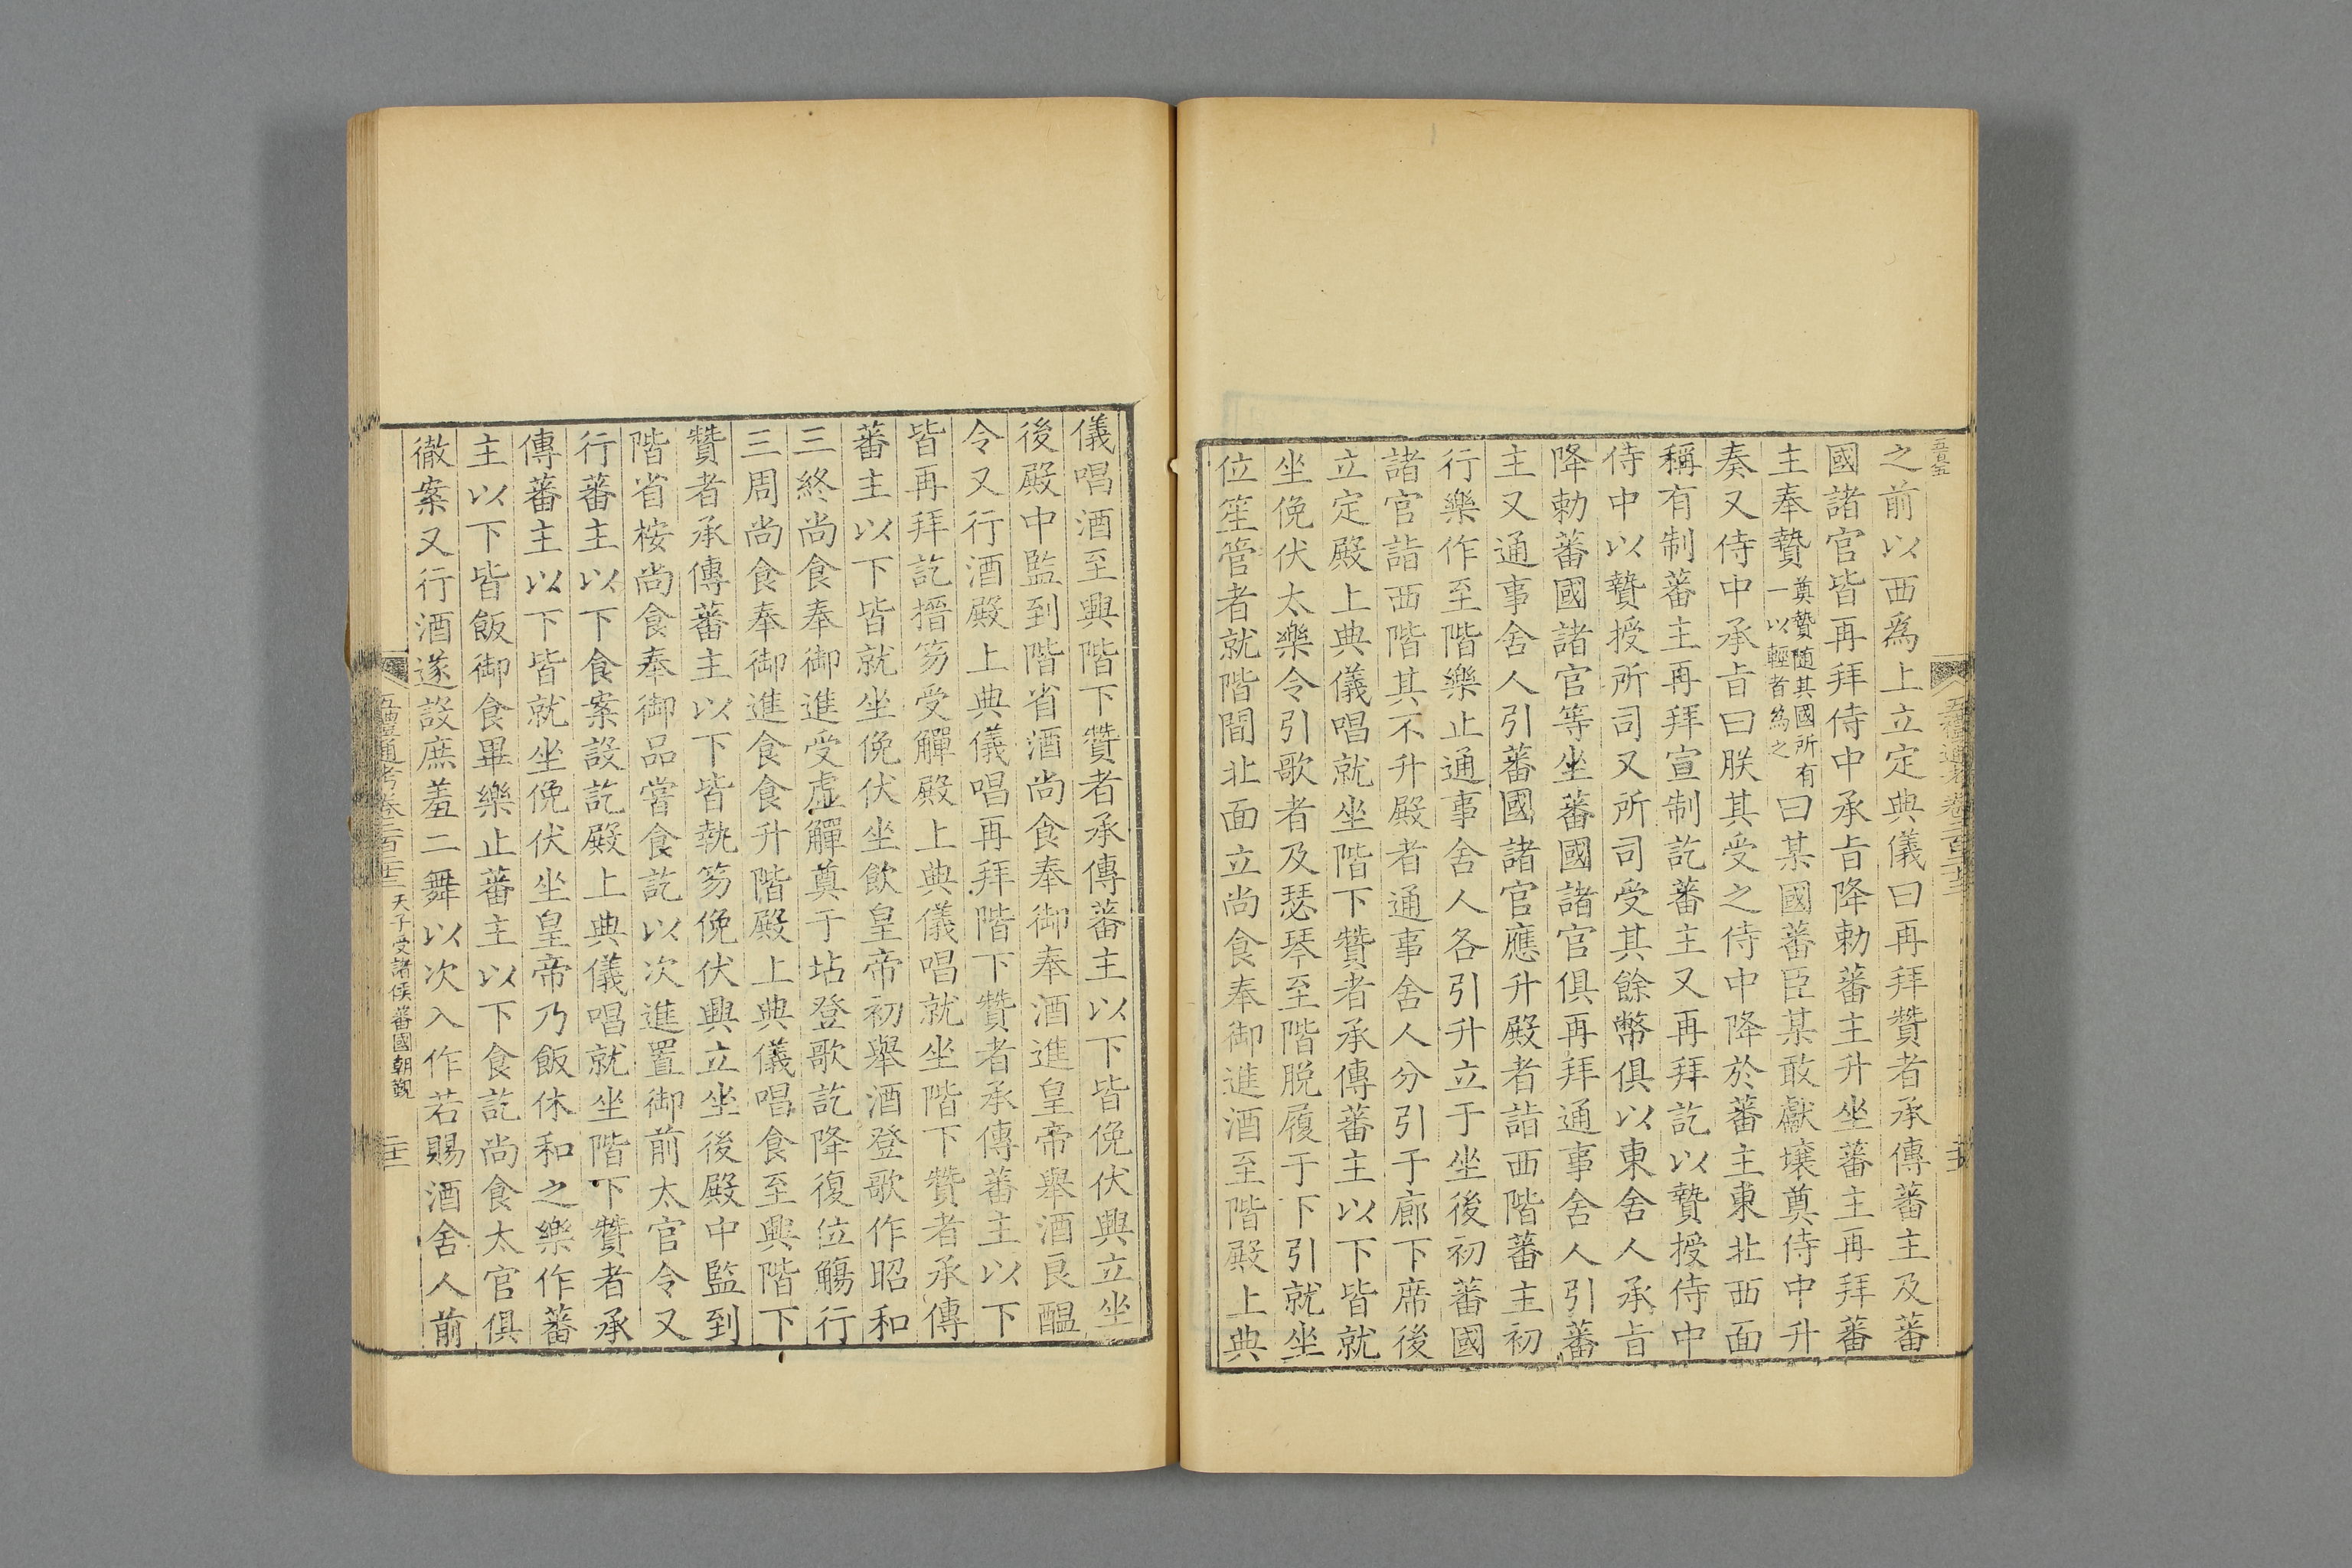 之前以西為上立定典儀曰再拜贊者承傳蕃主及蕃
國諸官皆再拜侍中承旨降勅蕃主升坐蕃主再拜蕃
主奉贄奠贄隨其國所有一以輕者為之曰某國蕃臣某敢獻壤奠侍中升
奏又侍中承旨曰朕其受之侍中降於蕃主東北西面
稱有制蕃主再拜宣制訖蕃主又再拜訖以贄授侍中
侍中以贄授所司又所司受其餘幣俱以東舍人承旨
降勅蕃國諸官等坐蕃國諸官俱再拜通事舍人引蕃
主又通事舍人引蕃國諸官應升殿者詣西階蕃主初
行樂作至階樂止通事舍人各引升立于坐後初蕃國
諸官詣西階其不升殿者通事舍人分引于廊下席後
立定殿上典儀唱就坐階下贊者承傳蕃主以下皆就
坐俛伏太樂令引歌者及瑟琴至階脫履于下引就坐
位笙管者就階間北面立尚食奉御進酒至階殿上典
儀唱酒至興階下贊者承傳蕃主以下皆俛伏興立坐
後殿中監到階省酒尚食奉御奉酒進皇帝舉酒良醞
令又行酒殿上典儀唱再拜階下贊者承傳蕃主以下
皆再拜訖搢笏受觶殿上典儀唱就坐階下贊者承傳
蕃主以下皆就坐俛伏坐飲皇帝初舉酒登歌作昭和
三終尚食奉御進受虛觶奠于坫登歌訖降復位觴行
三周尚食奉御進食食升階殿上典儀唱食至興階下
贊者承傳蕃主以下皆執笏俛伏興立坐後殿中監到
階省桉尚食奉御品嘗食訖以次進置御前太官令又
行蕃主以下食案設訖殿上典儀唱就坐階下贊者承
傳蕃主以下皆就坐俛伏坐皇帝乃飯休和之樂作蕃
主以下皆飯御食畢樂止蕃主以下食訖尚食太官俱
徹案又行酒遂設庶羞二舞以次入作若賜酒舍人前
五禮通考卷二百二十二 天子受諸侯蕃國朝覲